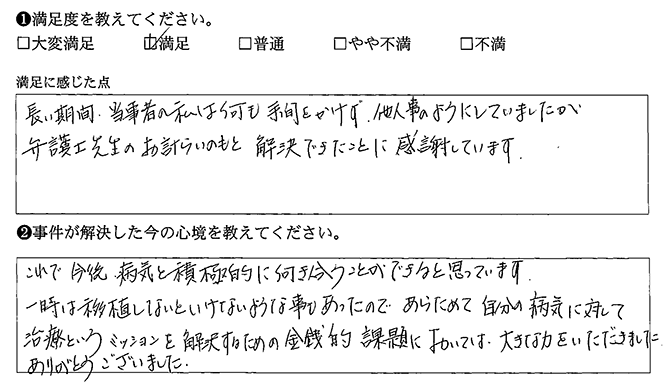 ❶満足度を教えてください。
□大変満足 ☑満足 □普通 □やや不満 □不満
満足に感じた点
長い期間、当事者の私は何も手間をかけず、他人事のようにしていましたが
弁護士先生のお計らいのもと 解決できたことに感謝しています。
❷事件が解決した今の心境を教えてください。
これで今後、病気と積極的に付き合うことができると思っています。
一時は移植しないといけないような事もあったので あらためて自分の病気に対して
治療というミッションを解決するための金銭的課題においては、大きな力をいただきました。
ありがとうございました。